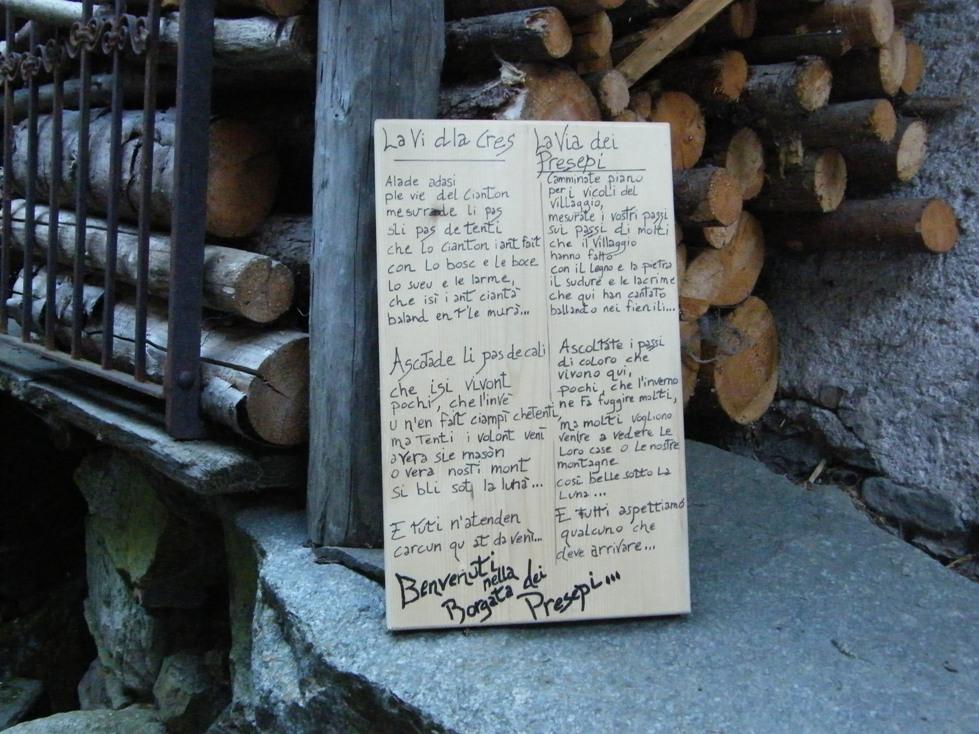 La Vi dla Cres
Alade adasi
ple vie del Cianton
mesurade li pas
sli pas de tenti
che lo cianton i ant fait
con lo bosc e le boce
lo sueu e le larme,
che isi i ant cianta
baland en t'le mura...
Ascotade li pas de cali
che isi vivont
pochi, che l'inve
u n'en fait ciampi che tenti,
ma tenti i volont veni
a vera sle mason
o vera nosti mont
si bli sot la luna...
E tuti n'atenden
carcun qu at da veni...
La Via dei
Presepi
Camminate piano
per i vicoli del
Villaggio,
mesurate i vostri passi
sui passi di molti
che il Villaggio
hanno fatto
con il Legno e la pietra
il sudure e le lacrime
che qui han cantato
ballando nei fienili...
Ascoltate i passi
di coloro che
vivono qui,
pochi, che l'inverno
ne fa fuggire molti,
ma molti vogliono
venire a vedere Le
Loro case o le nostre
montagne
così belle sotto La
Luna...
E tutti aspettiamo
qualcuno che
deve arrivare...
Benvenuti
nella
Borgata dei
Presepi...